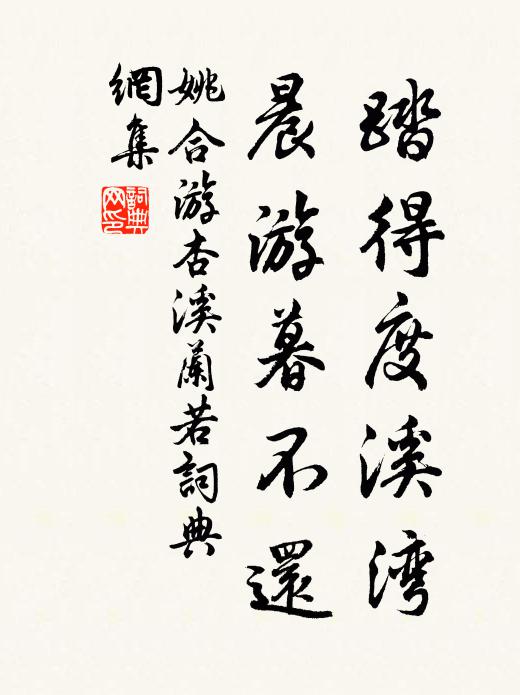 踏得度溪湾
晨游暮不還
姚合游杏溪蘭若詞典
網集
詞典
网印